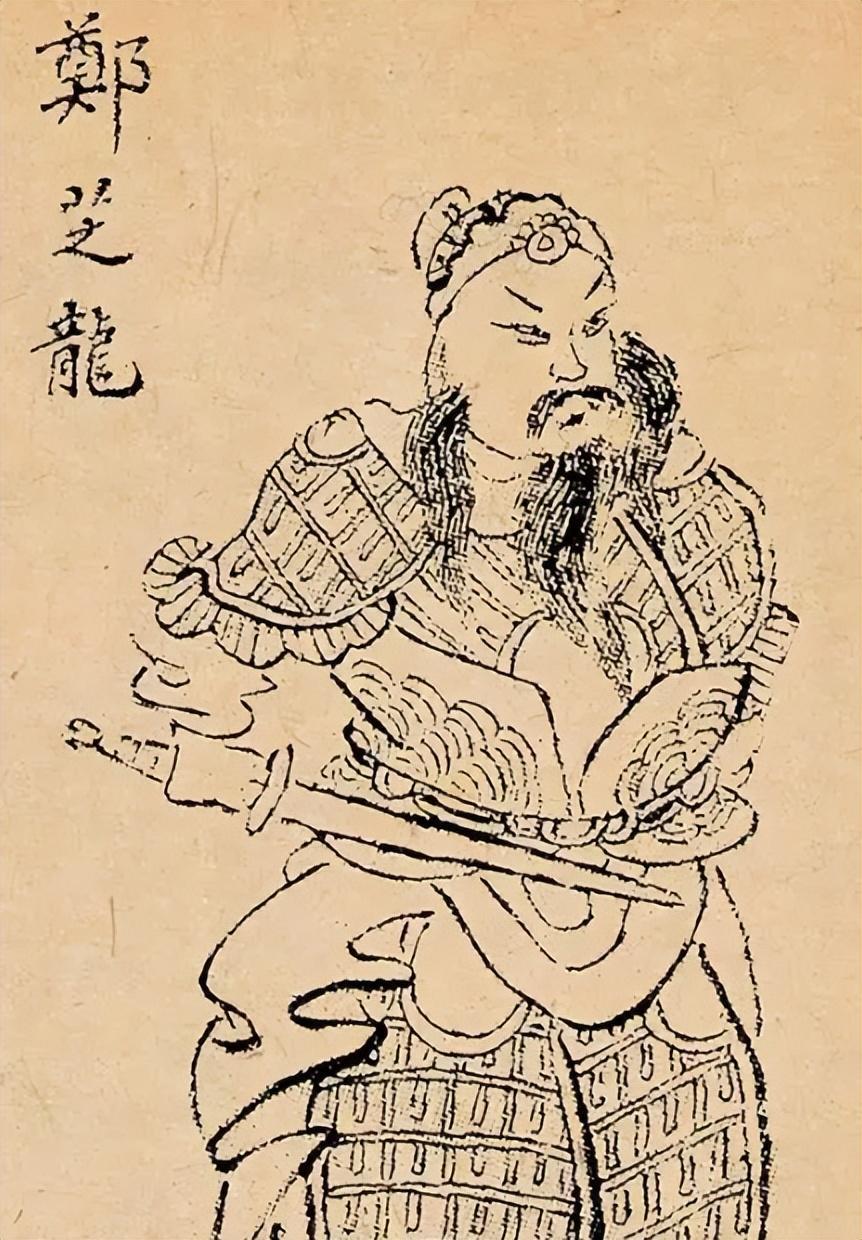 鄭芝龍